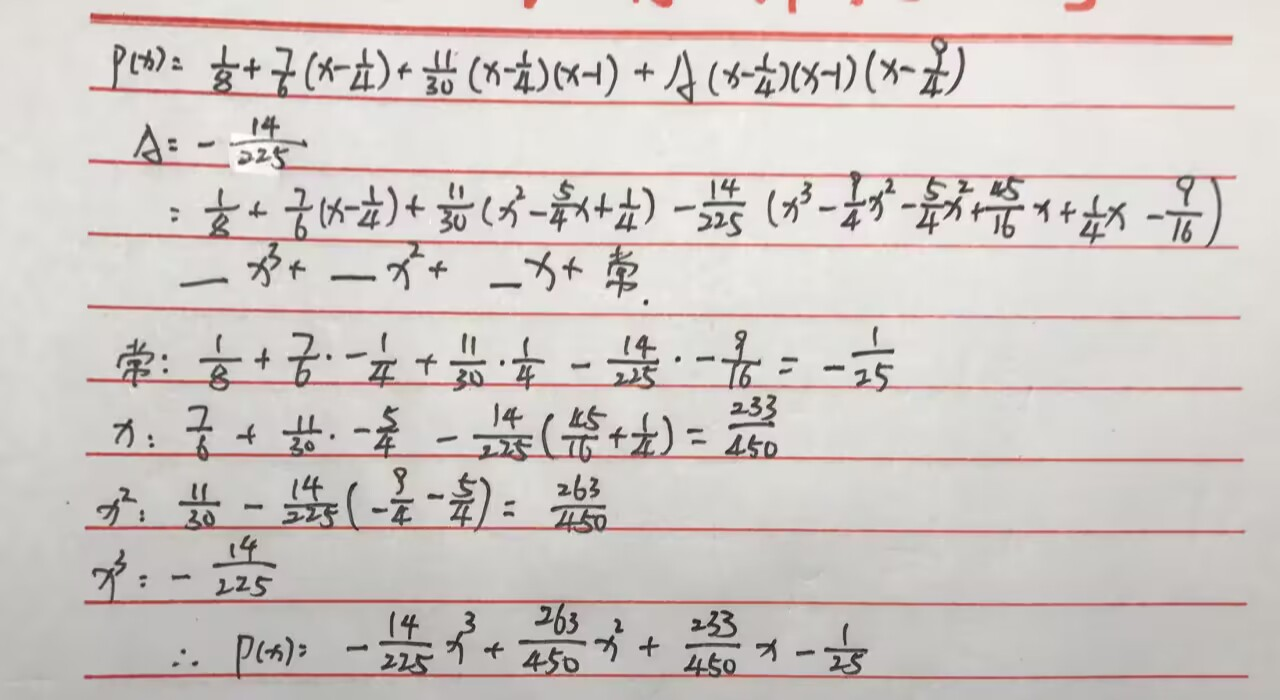 P(x)= 1/8 + 7/6 (x-1/4) + 11/30 (x-1/4)(x-1) + A (x-1/4)(x-1)(x-9/4)
A= - 14/225
= 1/8 + 7/6 (x-1/4) + 11/30 (x² - 5/4 x + 1/4) - 14/225 (x³ - 9/4 x² - 5/4 x² + 45/16 x + 1/4 x - 9/16)
_ x³ + _ x² + _ x + 常.
常: 1/8 + 7/6 · -1/4 + 11/30 · 1/4 - 14/225 · -9/16 = - 1/25
x: 7/6 + 11/30 · -5/4 - 14/225 (45/16 + 1/4) = 233/450
x²: 11/30 - 14/225 (-9/4 - 5/4) = 263/450
x³: - 14/225
∴ P(x)= - 14/225 x³ + 263/450 x² + 233/450 x - 1/25